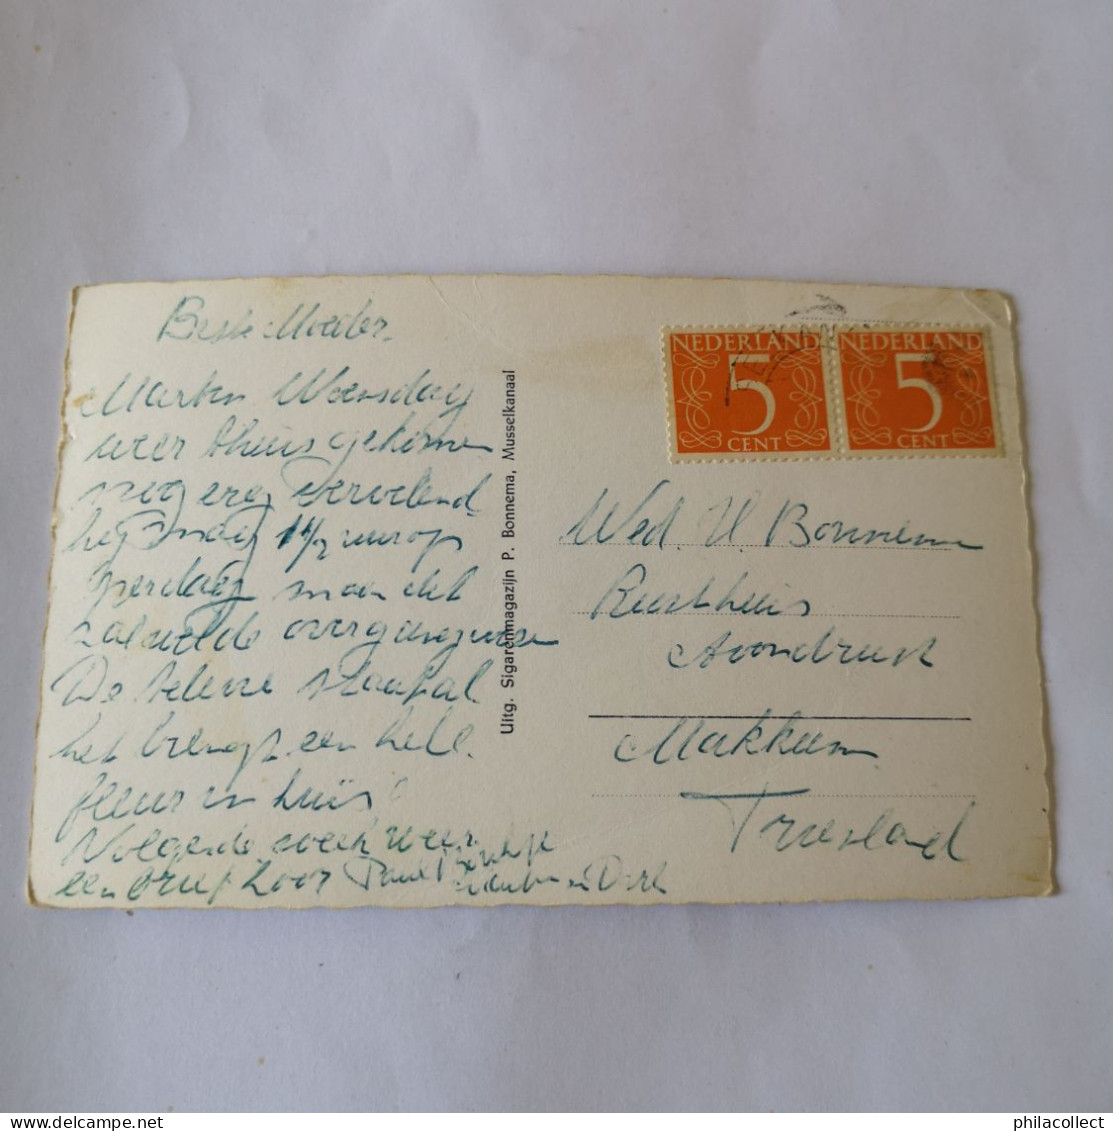 Beste Moeder.
Marten Woensdag
weer thuis gekomen
nog erg vervelend
hij mag 1 1/2 uur op
per dag maar dat
zal wel de overgang
De televisie staat al
het brengt een hele
fleur in huis
Volgende week weer
een brief hoor
Uitg. Sigarenmagazijn P. Bonnema, Musselkanaal
NEDERLAND
5
CENT
NEDERLAND
5
CENT
Wed. H Bonnema
Rusthuis
Avondrust
Makkum
Friesland
philacollect